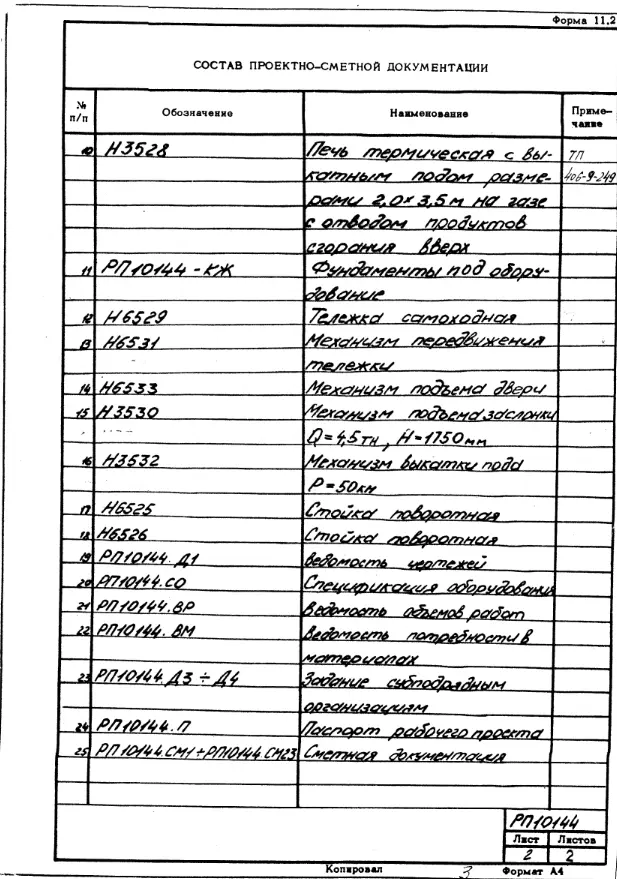 Форма 11.2
СОСТАВ ПРОЕКТНО-СМЕТНОЙ ДОКУМЕНТАЦИИ
№ п/п Обозначение Наименование Приме-
чание
10 Н3528 Печь термическая с вы- ТП
катным подом разме- 406-9-249
рами 2,0 х 3,5 м на газе
с отводом продуктов
сгорания вверх
11 РП10144 - КЖ Фундаменты под обору-
дование
12 Н6529 Тележка самоходная
13 Н6531 Механизм передвижения
тележки
14 Н6533 Механизм подъема двери
15 Н3530 Механизм подъема заслонки
Q = 4,5 тн, H = 1750 мм
16 Н3532 Механизм выкатки пода
Р = 50 кн
17 Н6525 Стойка поворотная
18 Н6526 Стойка поворотная
19 РП10144. Д1 Ведомость чертежей
20 РП10144.СО Спецификация оборудования
21 РП10144.ВР Ведомость объемов работ
22 РП10144. ВМ Ведомость потребности в
материалах
23 РП10144.Д3 ÷ Д4 Задание субподрядным
организациям
24 РП10144.П Паспорт рабочего проекта
25 РП10144.СМ1÷РП10144.СМ23 Сметная документация
РП10144
Лист Листов
2 2
Копировал 3 Формат А4